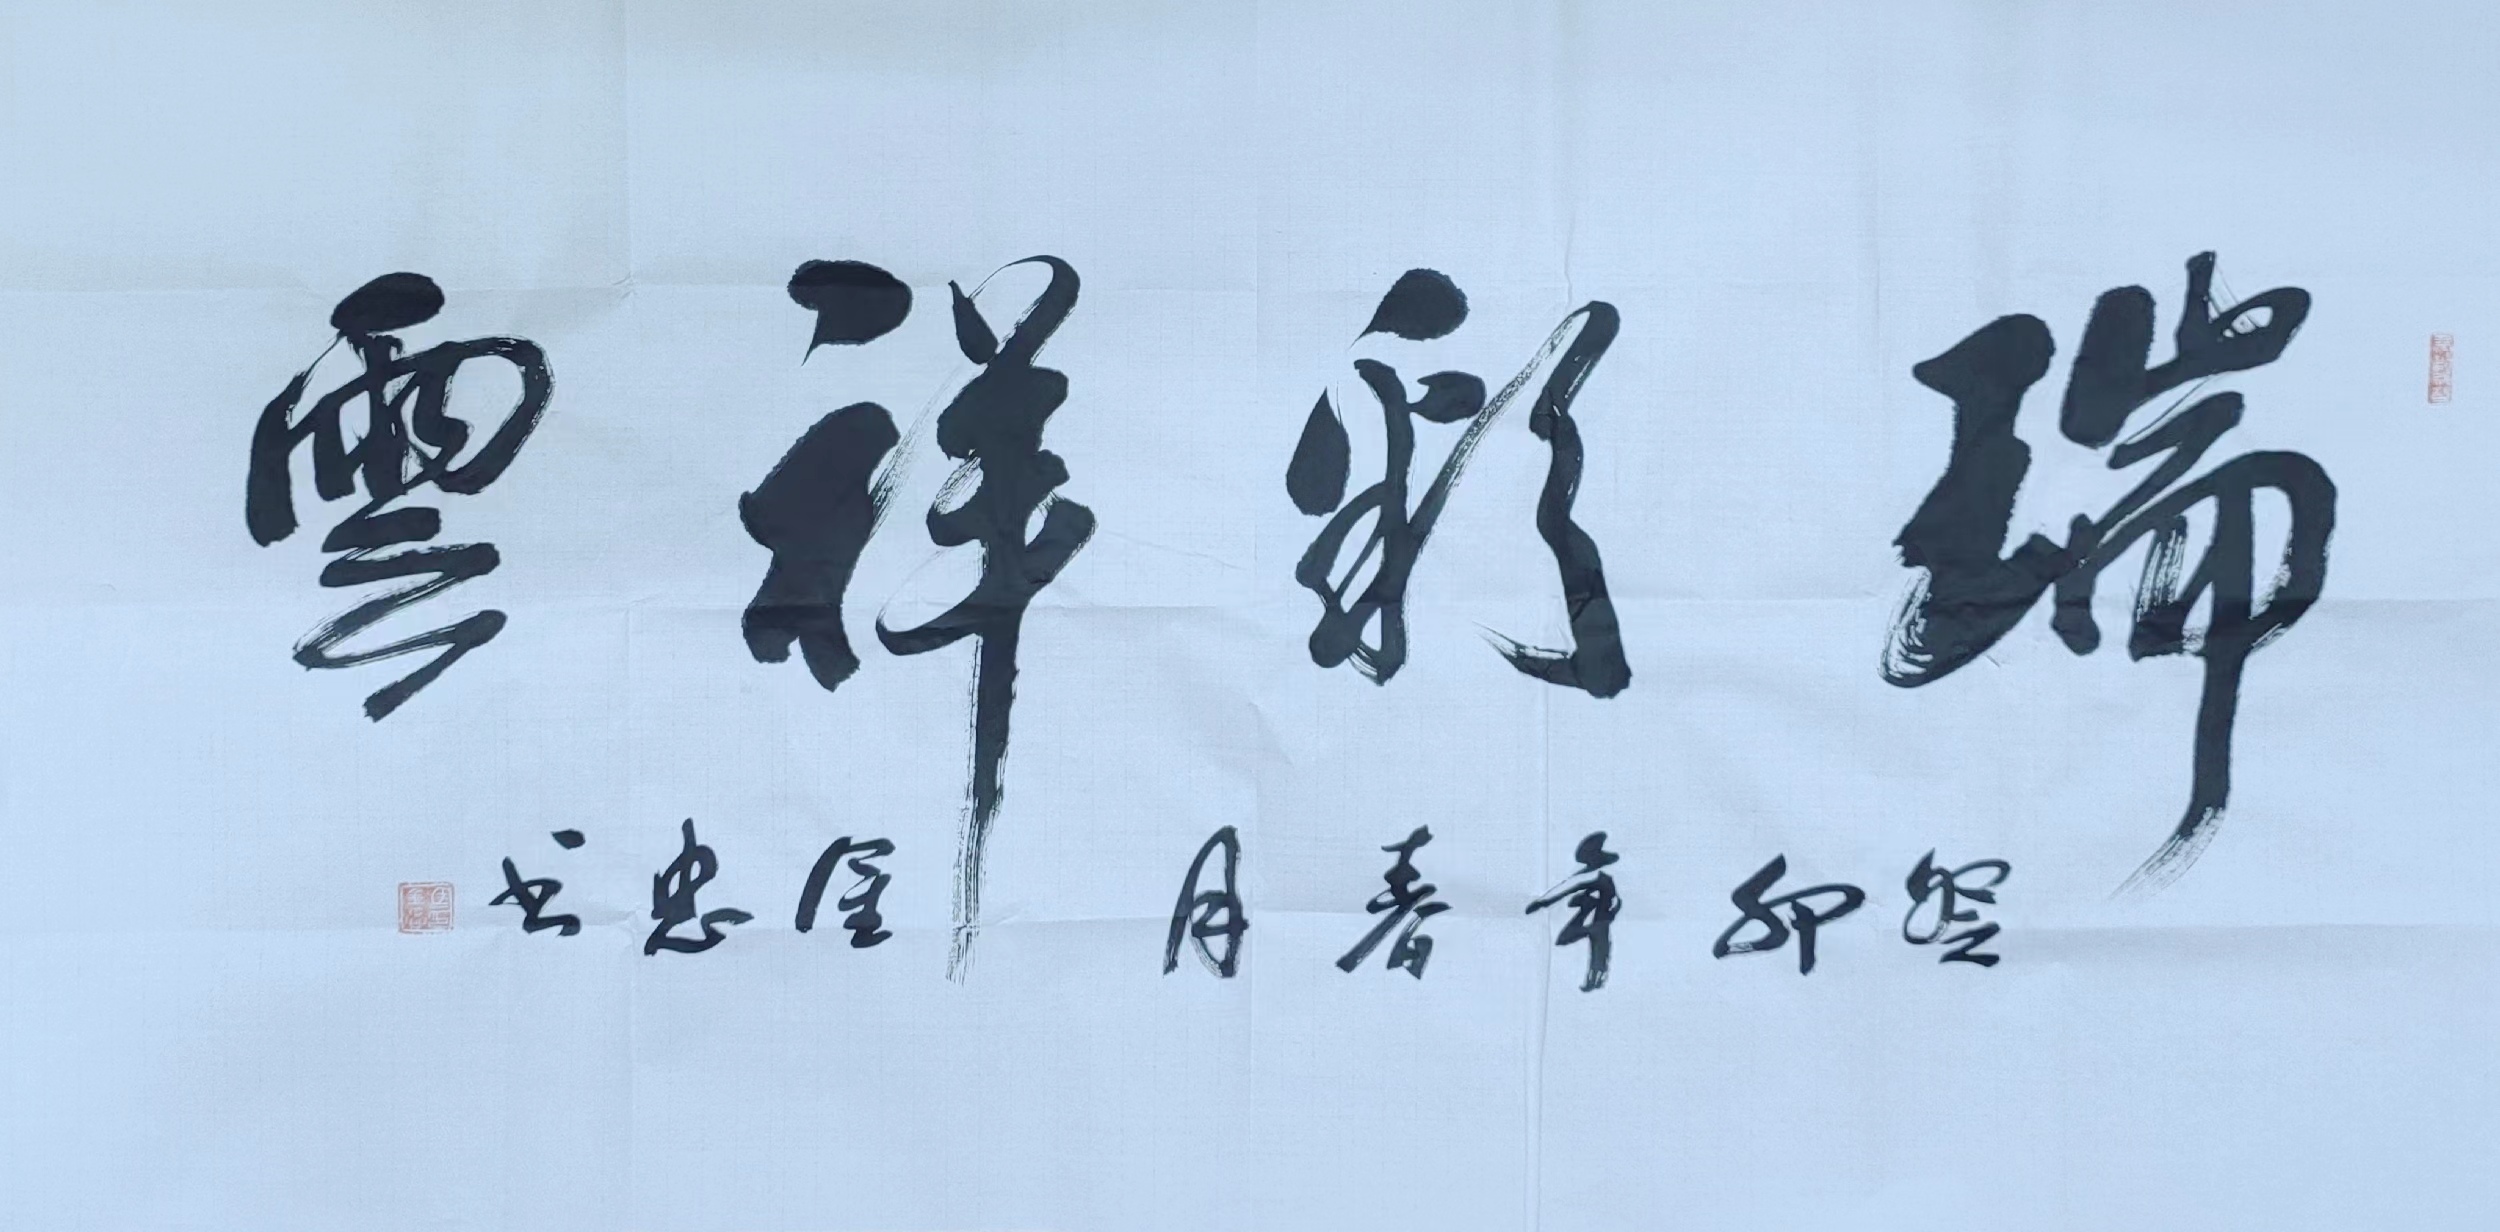 瑞彩祥雲
癸卯年春月 金忠书